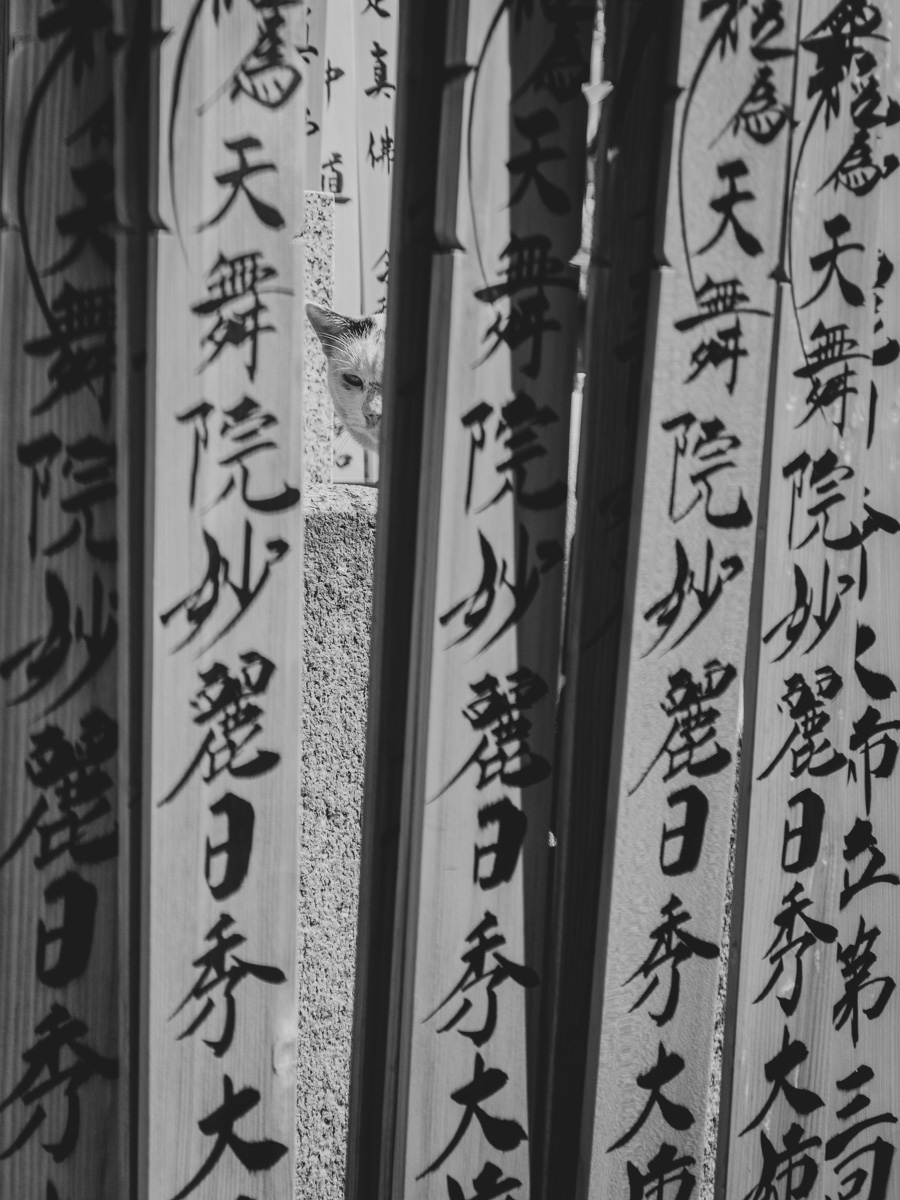 立第三
経為天舞院妙麗日秀大姉
経為天舞院妙麗日秀大
為天舞院妙麗日秀大
真佛
中道
為天舞院妙麗日秀大
天舞院妙麗日秀